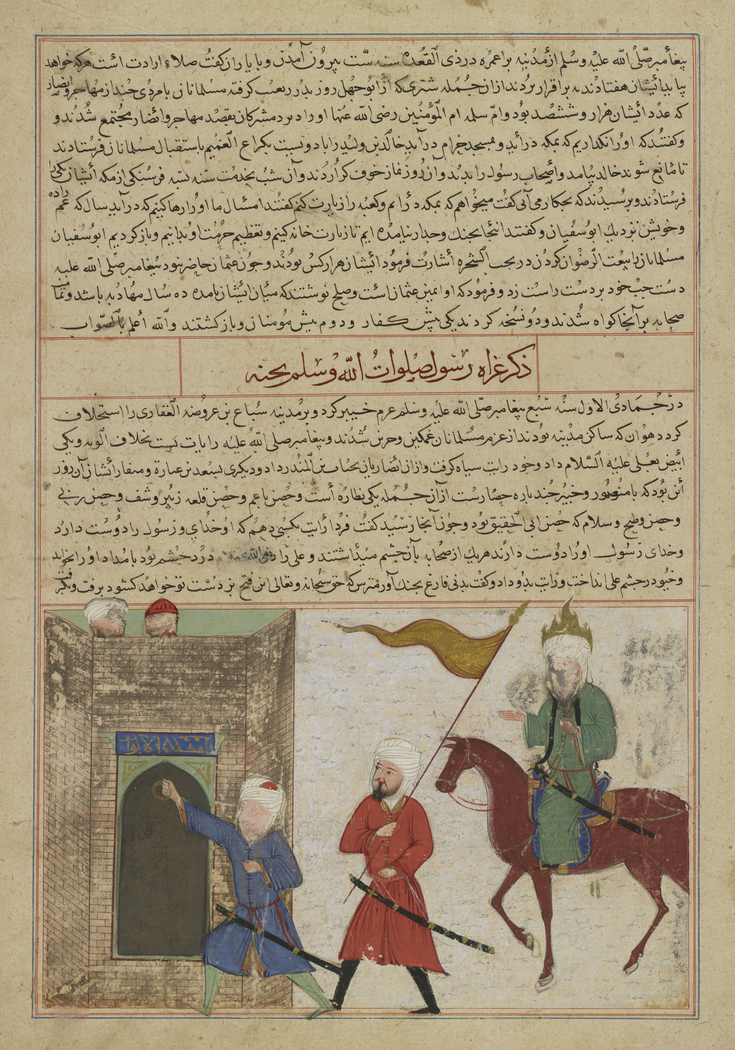 پیغامبر صلی الله علیه وسلم از مدینه براء عمره در ذی القعده سنه ست بیرون آمدن و با یاران گفت صلاء ارادت است هر که خواهد
بیاید ایشان هفتاد بدنه برا قرار بردند از آن جمله شتری که از ابوجهل روز بدر گرفته مسلمانان با مردی چند از مهاجر و انصار
که عدد ایشان هزار و ششصد بود و ام سلمه ام المؤمنین رضی الله عنها او را د بر دمشرکان بقصد مهاجر و انصار مجتمع شدند و
و گفتند که او را نگذاریم که بمکه درآید و بمسجد حرام درآید خالد بن ولید را با دویست بکراع الغمیم باستقبال مسلمانان فرستادند
تا مانع شوند خالد بیامد و اصحاب رسول را بدیدند و آن روز نماز خوف کزاردند و آن شب فرسنکی از مکه
فرستادند و پرسیدند که بچکار می آئی گفت میخواهم که بمکه درآیم و کعبه را زیارت کنم گفتند امسال ما او را رها نکنیم که درآید سال که
و خویش نزدیک ابوسفیان و گفتند اینجا بجنک و جدار نیامده ایم تا زیارت خانه کنیم و تعظیم حرمت او بدانیم و باز کردیم ابوسفیان
مسلمانان بیعت الرضوان کردن در تحت الشجره اشارت فرمود ایشان هزار کس بودند و چون عثمان حاضر نبود پیغامبر صلی الله علیه
دست چپ خود بر دست راست زد و فرمود که او یمین عثمان است و صلح نوشتند که میان ایشان تا مده ده سال مهادنه باشد و
صحابه بر آنجا کواه شدند و دو نسخه کردند یکی پیش کفار و دوم پیش مومنان و باز کشتند والله اعلم بالصواب
ذکر غزاه رسول صلوات الله وسلم بحنه
در جمادی الاول سنه سبع پیغامبر صلی الله علیه وسلم عزم خیبر کرد و بر مدینه سباع بن عروضه الغفاری را استخلاف
کرد و هوان که ساکن مدینه بودند از عزم مسلمانان غمکین و حزین شدند و پیغامبر صلی الله علیه را رایات بست بخلاف الویه و یکی
ابیض بعلی علیه السلام داد و خود رایت سیاه گرفت و از انصار یاز بحباب بن المنذر داد و دیگری بسعد بن عباره و
و خیبر چند باره حصارست از آن جمله یکی نظاره است و حصن ناعم و حصن قلعه زبیر و شف و حصن
و حصن وطیح و سلام که حصن ابی الحقیق بود و چون آنجا رسید گفت فردا رایت بکسی دهم که او خدای و رسول را دوست دارد
و خدای و رسول او را دوست دارند هریک از صحابه بآن چشم میداشتند و علی را درد چشم بود بامداد او را بخواند
و خیو در چشم علی انداخت و رایت بدو داد و گفت بدنی فارغ بجنک آور مترس که حق سبحانه و تعالی این فتح بر دست تو خواهد کشود برفت و